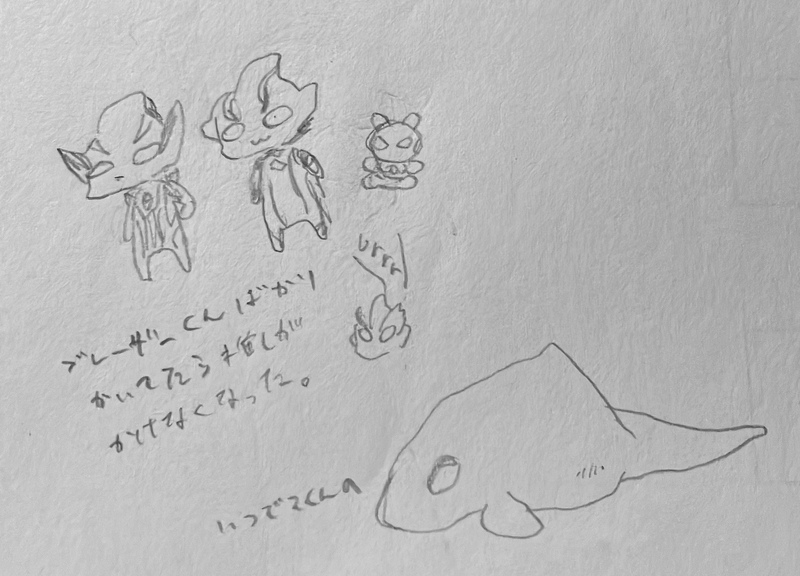 brrr
ブレーザーくんばかり
かいてたら推しが
かけなくなった。
いつでてくんの